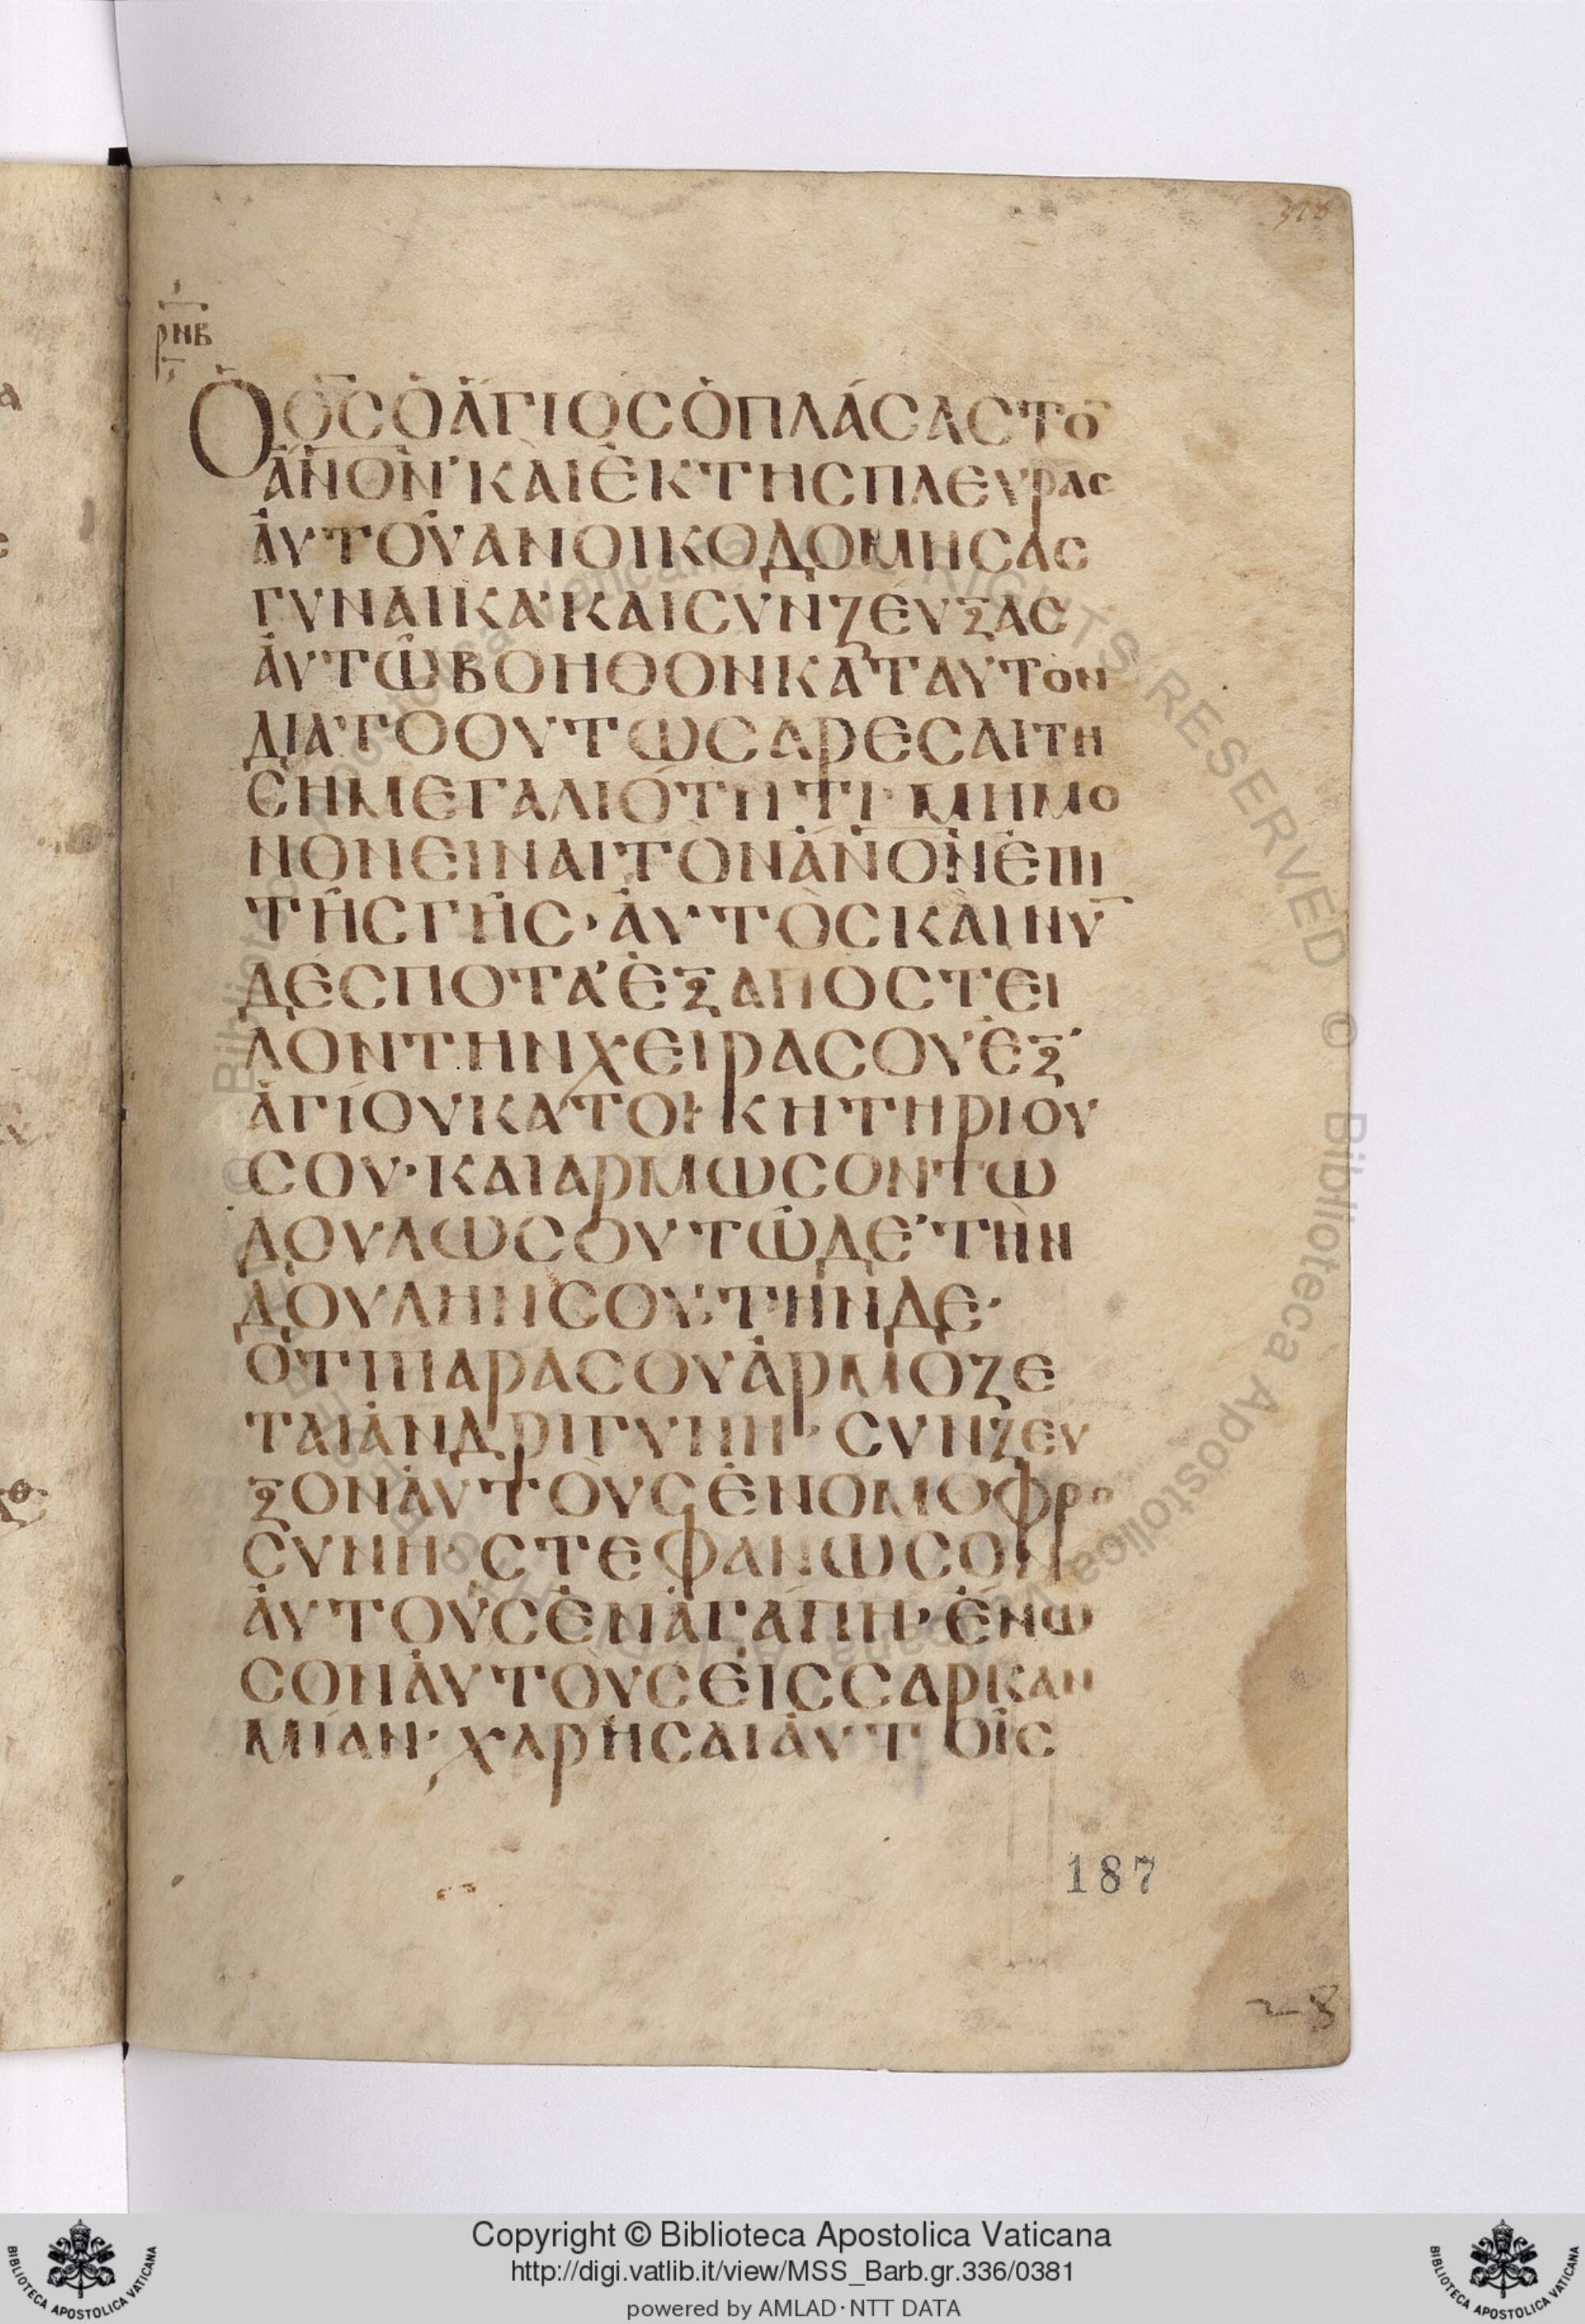 928
ρнв
Ὁ Θ̅Σ̅ Ὁ ἍΓΙΟΣ Ὁ ΠΛΆΣΑΣ ΤΟ̅
ἈΝ̅ΟΝ· ΚΑῚ ἘΚ ΤΗΣ ΠΛΕΥΡΑΣ
ἈΥΤΟΥ ΑΝΟΙΚΟΔΟΜΗΣΑΣ
ΓΥΝΑΙΚΑ· ΚΑΙ ΣΥΝΖΕΎΞΑΣ
ἈΥΤΩ͂ ΒΟΗΘΟΝ ΚΑΤ ΑΥΤΟΝ
ΔΙΑ ΤΟ ΟΥΤΩΣ ΑΡΕΣΑΙ ΤΗ
ΣΗ ΜΕΓΑΛΙΌΤΗΤΙ· ΜΗ ΜΟ
ΝΟΝ ΕΙΝΑΙ ΤῸΝ ἈΝ̅ΟΝ ἘΠΙ
ΤΗ͂Σ ΓΗ͂Σ· ἈΥΤῸΣ ΚΑῚ ΝΥ̅
ΔΈΣΠΟΤΑ· ἘΞΑΠΟΣΤΕΙ
ΛΟΝ ΤΗΝ ΧΕΙΡΑ ΣΟΥ ἘΞ
ἉΓΊΟΥ ΚΑΤΟΙΚΗΤΗΡΙΟΥ
ΣΟΥ· ΚΑΙ ΑΡΜΩΣΟΝ ΤΩ
ΔΟΥΛΩ ΣΟΥ ΤΩ͂ΔΕ· ΤῊΝ
ΔΟΥΛΗΝ ΣΟΥ· ΤΉΝΔΕ·
ὍΤΙ ΠΑΡΑ ΣΟΥ ἉΡΜΟΖΕ
ΤΑΙ ἈΝΔΡΙ ΓΥΝΗ· ΣΥΝΖΕΥ
ΞΟΝ ἈΥΤΟῪΣ ἘΝ ΟΜΟΦΡΟ
ΣΥΝΗ· ΣΤΕΦΑΝΩΣΟΝ
ἈΥΤΟῪΣ ἘΝ ἈΓΆΠΗ· ἝΝΩ
ΣΟΝ ἈΥΤΟῪΣ ΕἸΣ ΣΑΡΚΑΝ
ΜΊΑΝ· ΧΑΡΗΣΑΙ ἈΥΤΟΙ͂Σ
187
28
Copyright © Biblioteca Apostolica Vaticana
http://digi.vatlib.it/view/MSS_Barb.gr.336/0381
powered by AMLAD·NTT DATA
BIBLIOTECA APOSTOLICA VATICANA
BIBLIOTECA APOSTOLICA VATICANA